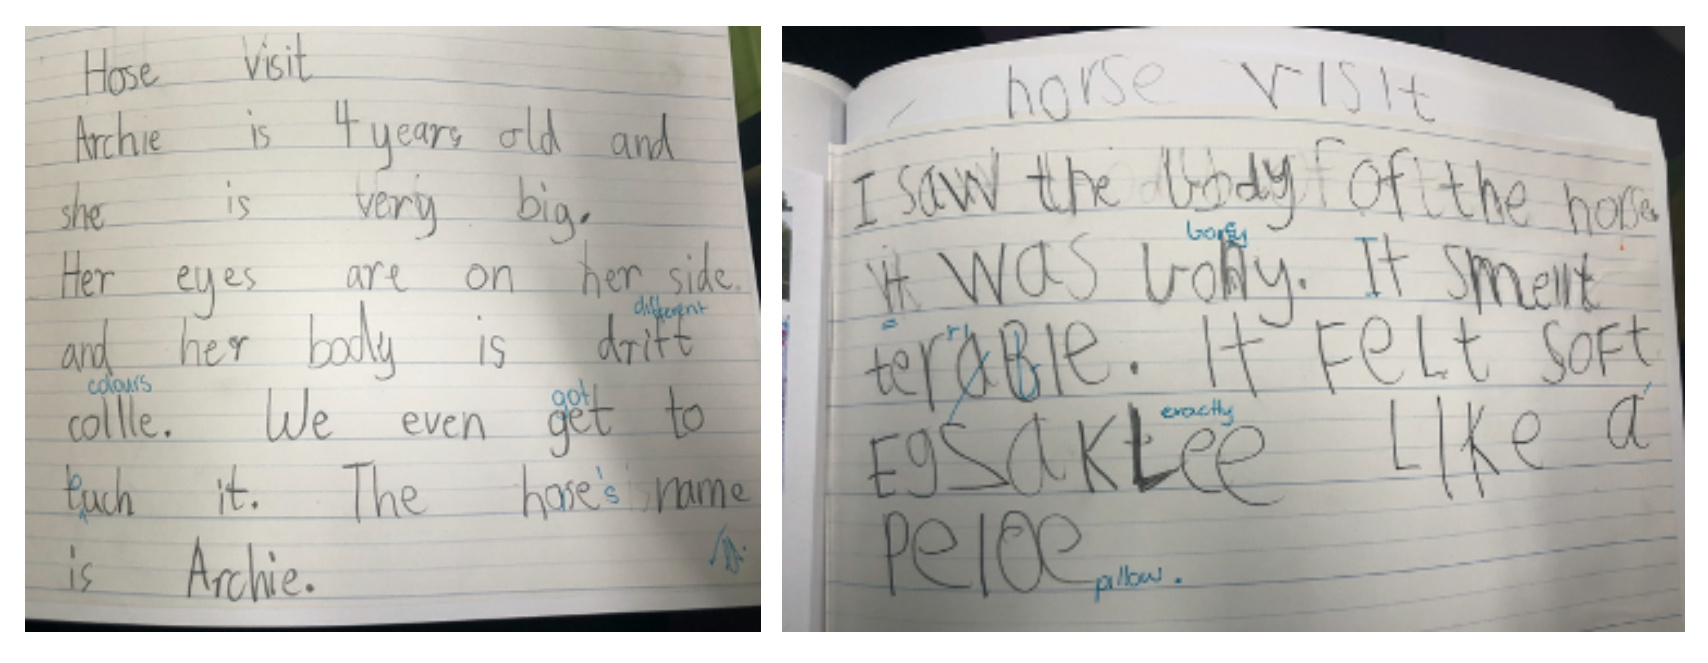 Hose Visit
Archie is 4 years old and
she is very big.
Her eyes are on her side.
different
and her body is drift
colours
collle. We even get to
got
tuch it. The hose's name
is Archie.
horse visit
I saw the body of the horse.
It was bony. It smellt
terable. It FeLt SoFt
ri
exactly
EgSaKLee LIKe a
PelOe
pillow.